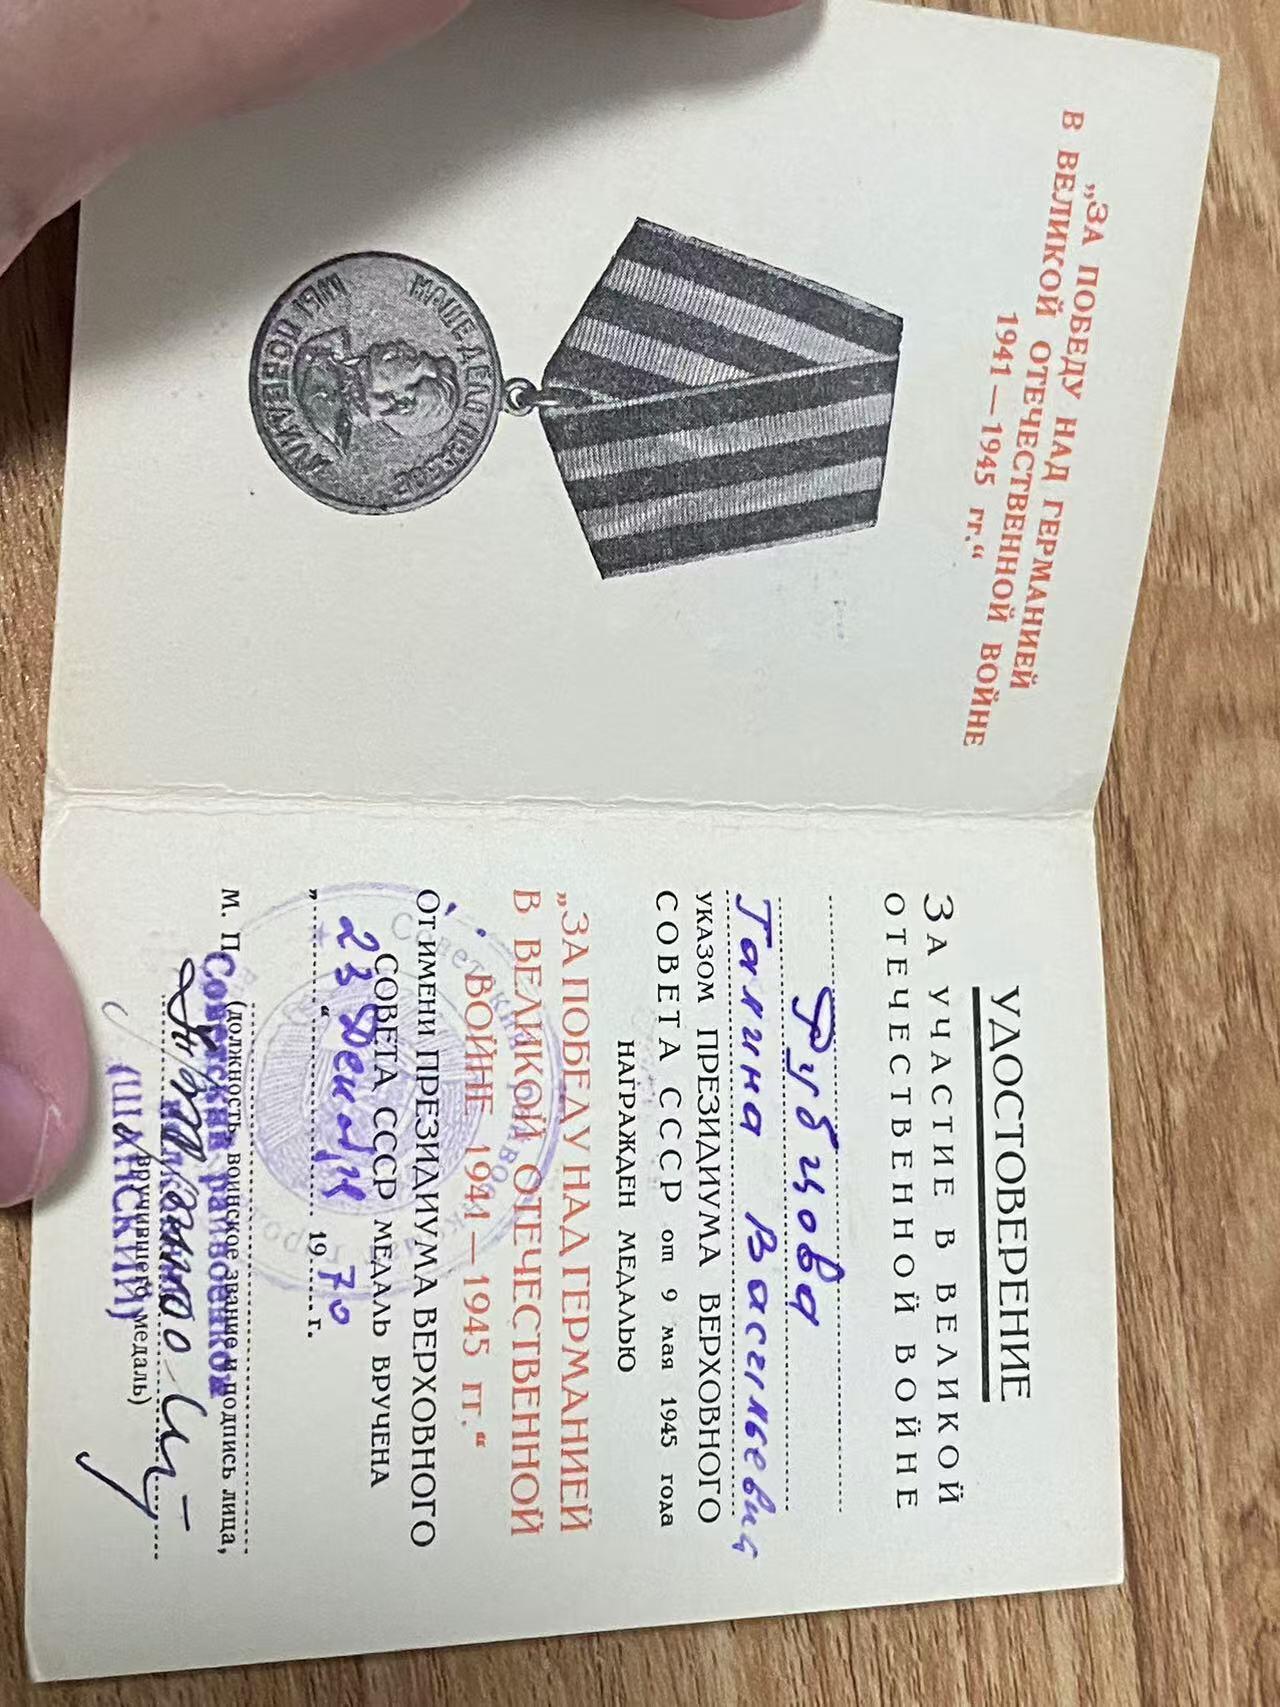 „ЗА ПОБЕДУ НАД ГЕРМАНИЕЙ
В ВЕЛИКОЙ ОТЕЧЕСТВЕННОЙ ВОЙНЕ
1941—1945 гг.“
НАШЕ ДЕЛО ПРАВОЕ
УДОСТОВЕРЕНИЕ
ЗА УЧАСТИЕ В ВЕЛИКОЙ
ОТЕЧЕСТВЕННОЙ ВОЙНЕ
Рубцова
Галина Васильевна
УКАЗОМ ПРЕЗИДИУМА ВЕРХОВНОГО
СОВЕТА СССР от 9 мая 1945 года
НАГРАЖДЕН МЕДАЛЬЮ
„ЗА ПОБЕДУ НАД ГЕРМАНИЕЙ
В ВЕЛИКОЙ ОТЕЧЕСТВЕННОЙ
ВОЙНЕ 1941—1945 гг.“
От ИМЕНИ ПРЕЗИДИУМА ВЕРХОВНОГО
СОВЕТА СССР МЕДАЛЬ ВРУЧЕНА
„23“ Декабря 1970 г.
М. П.
Советский райвоенком
(должность, воинское звание и подпись лица,
вручившего медаль)
(ШАНСКИЙ)